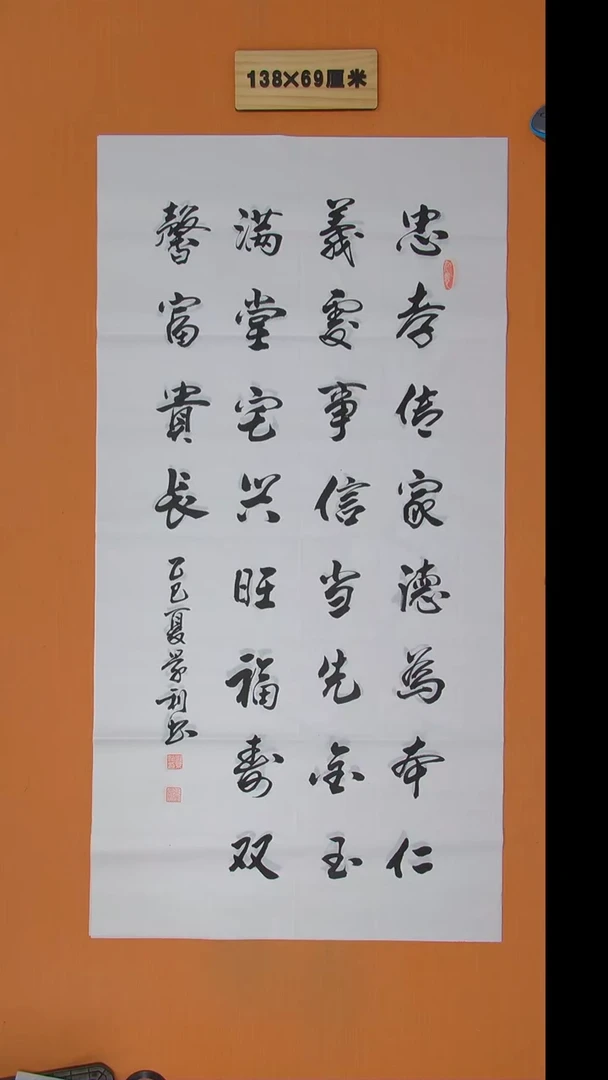 138×69厘米
忠孝传家德为本仁
義處事信当先金玉
满堂宅兴旺福寿双
馨富貴长
乙巳夏学利书